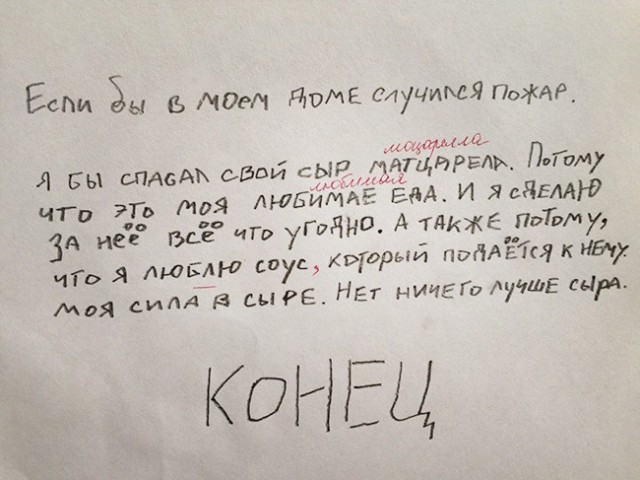 Если бы в моем доме случился пожар.
моцарелла
Я бы спасал свой сыр матцарела. Потому
любимая
что это моя любимае еда. И я сделаю
за неё всё что угодно. А также потому,
что я люблю соус, который подаётся к нему.
Моя сила в сыре. Нет ничего лучше сыра.
КОНЕЦ